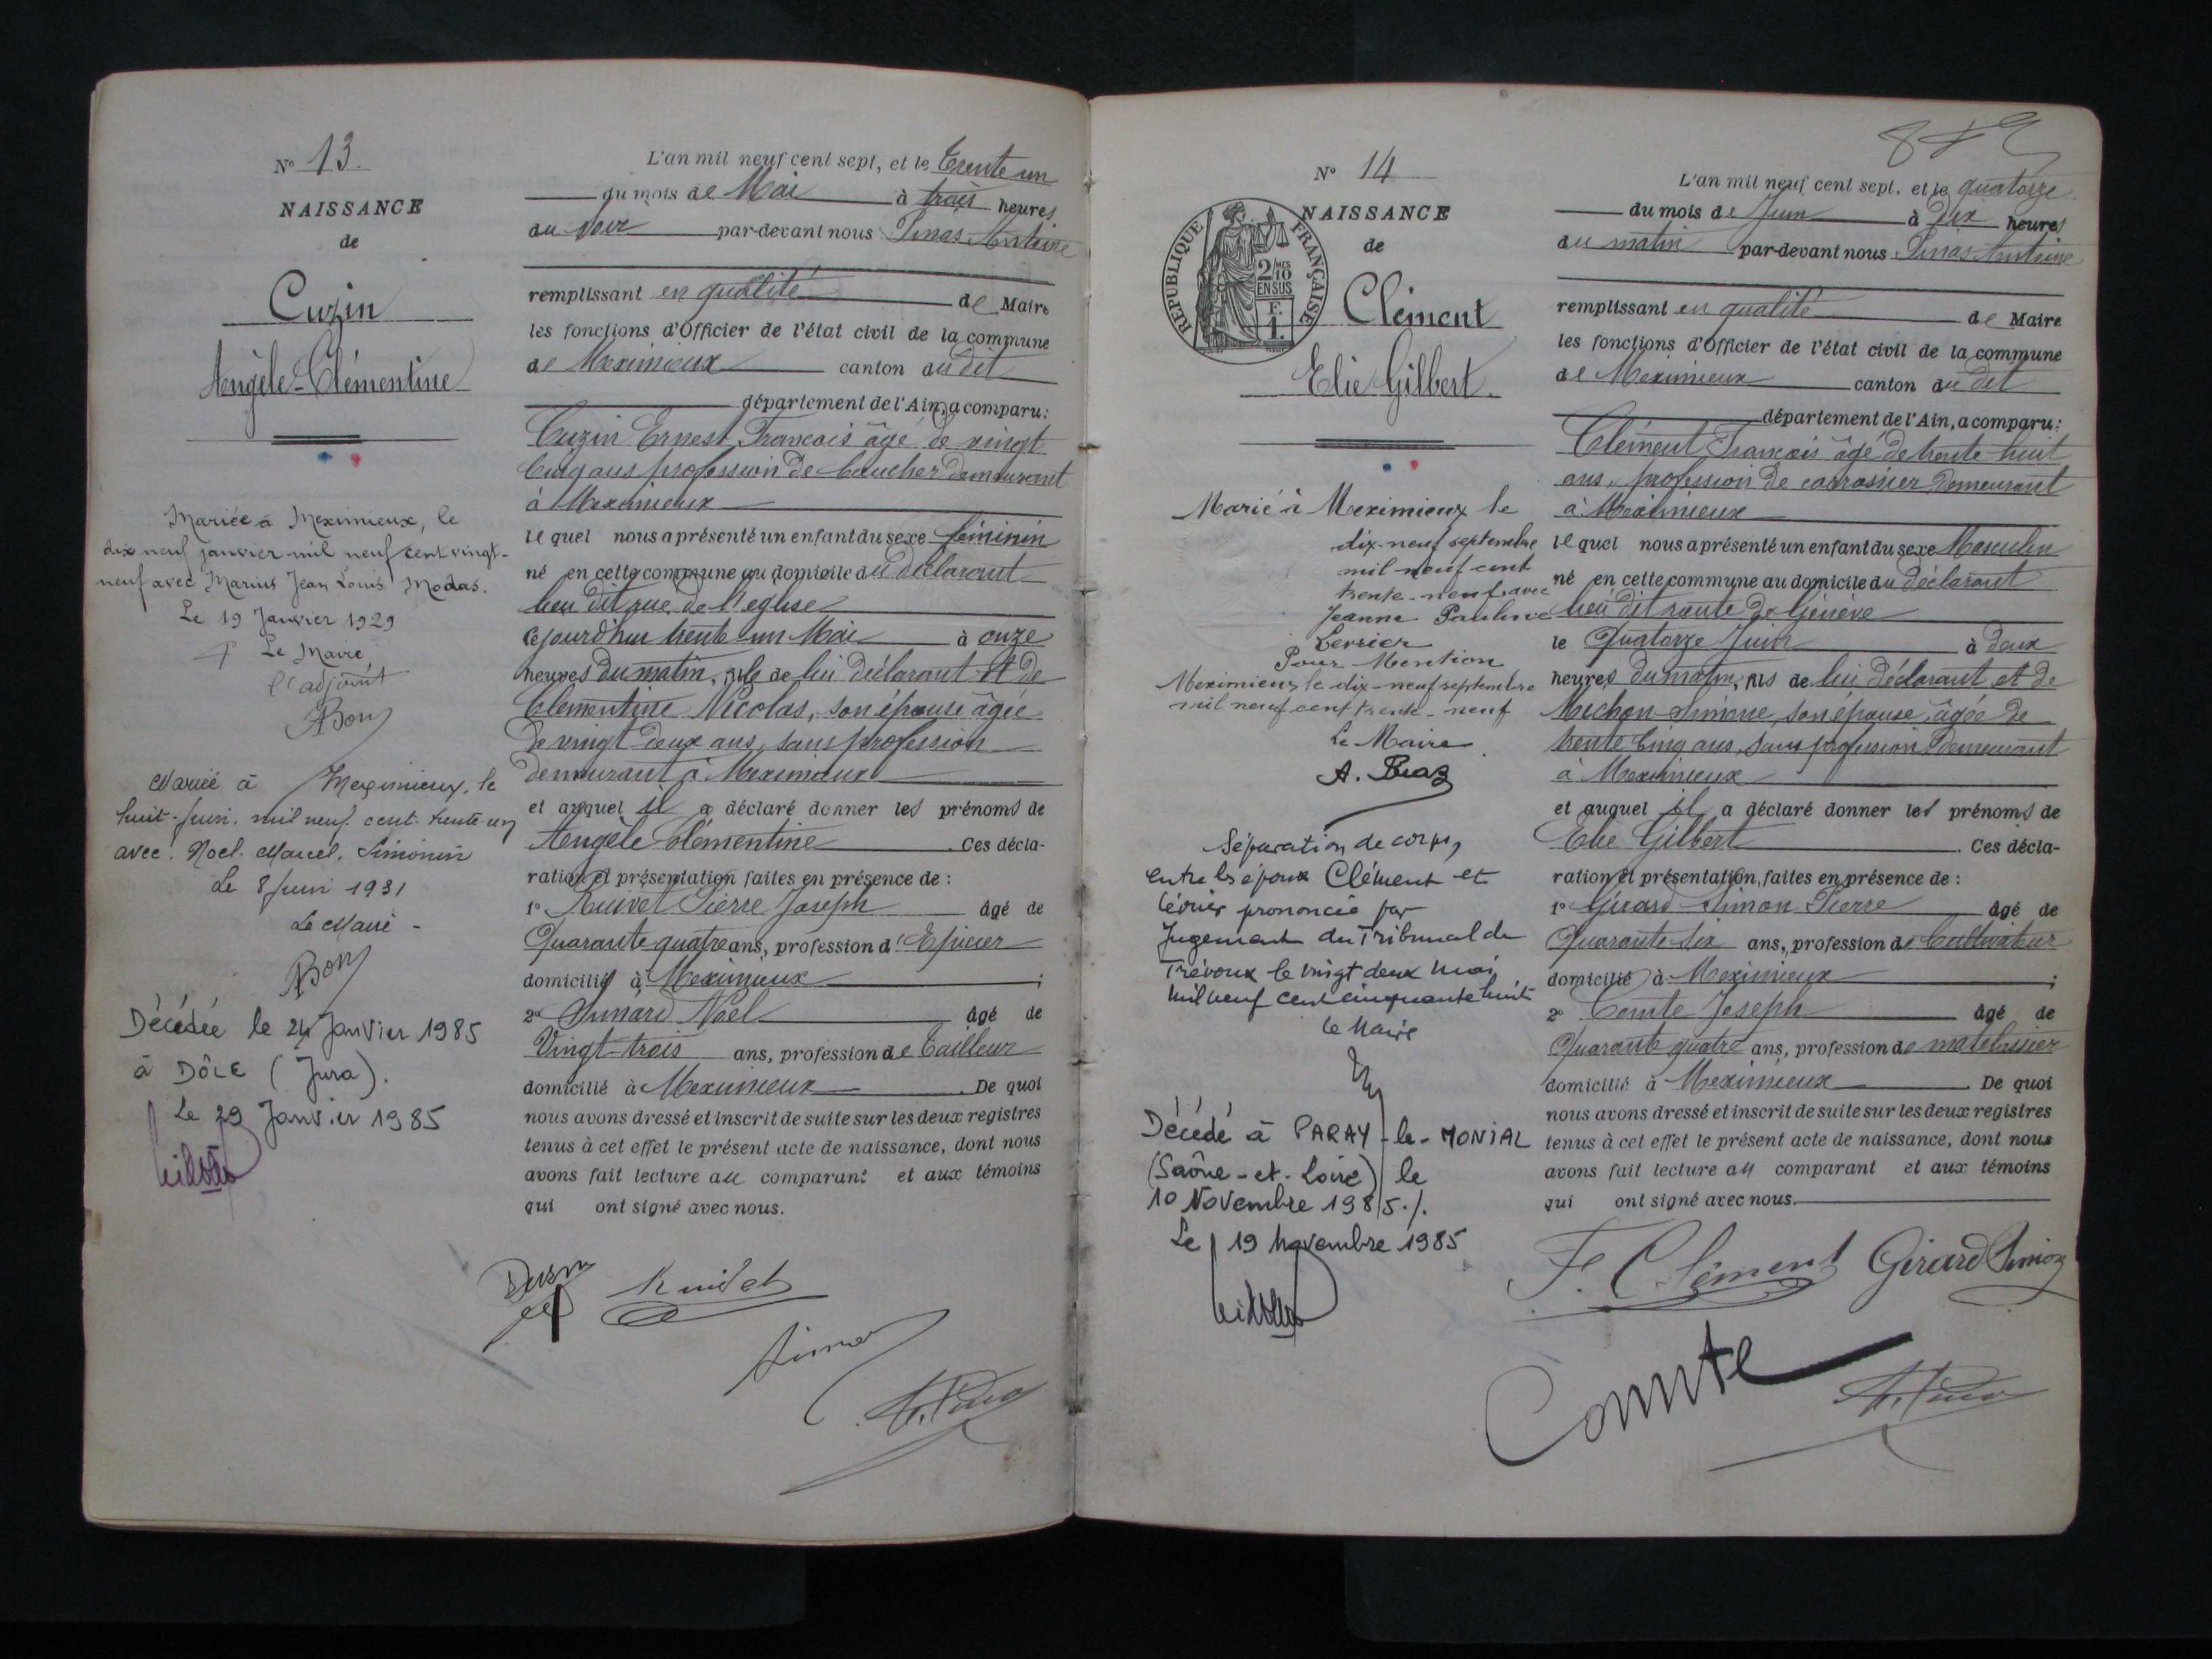 N° 13.
NAISSANCE
de
Cuzin
Angèle-Clémentine
Mariée à Meximieux, le
dix neuf janvier mil neuf cent vingt-
neuf avec Marius Jean Louis Modas.
Le 19 Janvier 1929
Le Maire
l'adjoint
Mariée à Meximieux, le
huit Juin. mil neuf cent trente un
avec. Noel. Marcel. Simonin
Le 8 Juin 1931
Le Maire -
Décédée le 24 Janvier 1985
à DÔLE (Jura).
Le 29 Janvier 1985
L'an mil neuf cent sept, et le trente un
du mois de Mai à trois heures
du soir par-devant nous Antoine
remplissant en qualité de Maire
les fonctions d'Officier de l'état civil de la commune
de Meximieux canton du dit
département de l'Ain, a comparu:
Cuzin Ernest François âgé de vingt
cinq ans profession de boucher demeurant
à Meximieux
le quel nous a présenté un enfant du sexe féminin
né en cette commune au domicile du déclarant
lieu dit rue de l'eglise
cejourd'hui trente un Mai à onze
heures du matin, fille de lui déclarant et de
Clémentine Nicolas, son épouse âgée
de vingt deux ans, sans profession
demeurant à Meximieux
et auquel il a déclaré donner les prénoms de
Angèle Clémentine . Ces décla-
ration et présentation faites en présence de :
1° Pierre Joseph âgé de
Quarante quatre ans, profession d'Epicier
domicilié à Meximieux ;
2° Noel âgé de
Vingt-trois ans, profession de tailleur
domicilié à Meximieux . De quoi
nous avons dressé et inscrit de suite sur les deux registres
tenus à cet effet le présent acte de naissance, dont nous
avons fait lecture au comparant et aux témoins
qui ont signé avec nous.
N° 14
NAISSANCE
de
RÉPUBLIQUE FRANÇAISE
2/10 MES
EN SUS
F.
1.
Clément
Elie Gilbert.
Marié à Meximieux le
dix-neuf septembre
mil neuf cent
trente-neuf avec
Jeanne Pauline
Pour Mention
Meximieux le dix-neuf septembre
mil neuf cent trente-neuf
Le Maire
Séparation de corps,
entre les époux Clément et
prononcée par
Jugement du Tribunal de
Trévoux le vingt deux mai
mil neuf cent cinquante huit
le Maire
Décédé à PARAY-le-MONIAL
(Saône-et-Loire) le
10 Novembre 1985./.
Le 19 Novembre 1985
L'an mil neuf cent sept, et le quatorze
du mois de Juin à dix heures
du matin par-devant nous Antoine
remplissant en qualité de Maire
les fonctions d'Officier de l'état civil de la commune
de Meximieux canton du dit
département de l'Ain, a comparu:
Clément François âgé de trente huit
ans, profession de carrossier demeurant
à Meximieux
le quel nous a présenté un enfant du sexe Masculin
né en cette commune au domicile du déclarant
lieu dit route de Genève
le Quatorze Juin à deux
heures du matin, fils de lui déclarant et de
Michon Simone, son épouse, âgée de
trente cinq ans, sans profession demeurant
à Meximieux
et auquel il a déclaré donner les prénoms de
Elie Gilbert . Ces décla-
ration et présentation, faites en présence de :
1° Girard Simon Pierre âgé de
Quarante six ans, profession de Cultivateur
domicilié à Meximieux ;
2° Comte Joseph âgé de
Quarante quatre ans, profession de matelassier
domicilié à Meximieux . De quoi
nous avons dressé et inscrit de suite sur les deux registres
tenus à cet effet le présent acte de naissance, dont nous
avons fait lecture au comparant et aux témoins
qui ont signé avec nous.
F. Clément Girard Simon
Comte